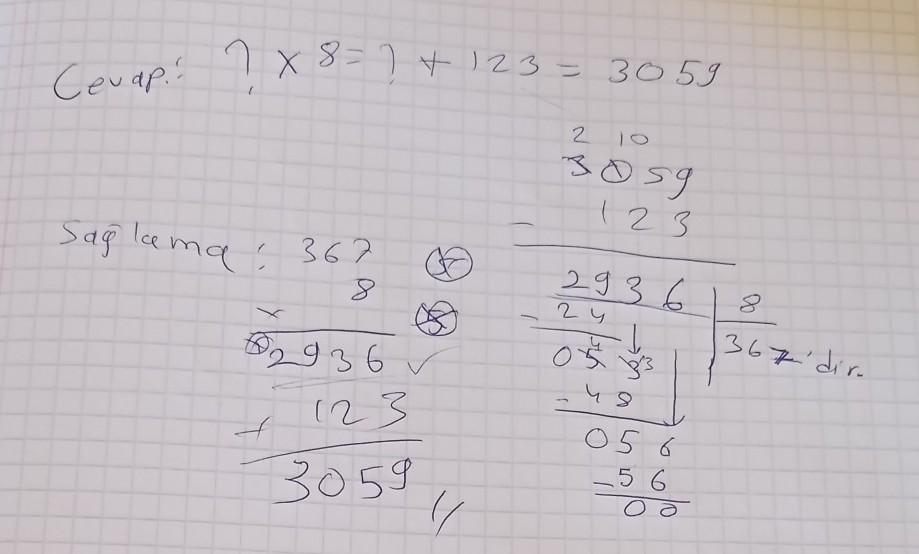 Cevap: ? x 8 = ? + 123 = 3059
2 10
3059
- 123
2936 | 8
367'dir.
- 24
053
- 48
056
- 56
00
Sağlama: 367
x 8
2936 ✓
+ 123
3059 //